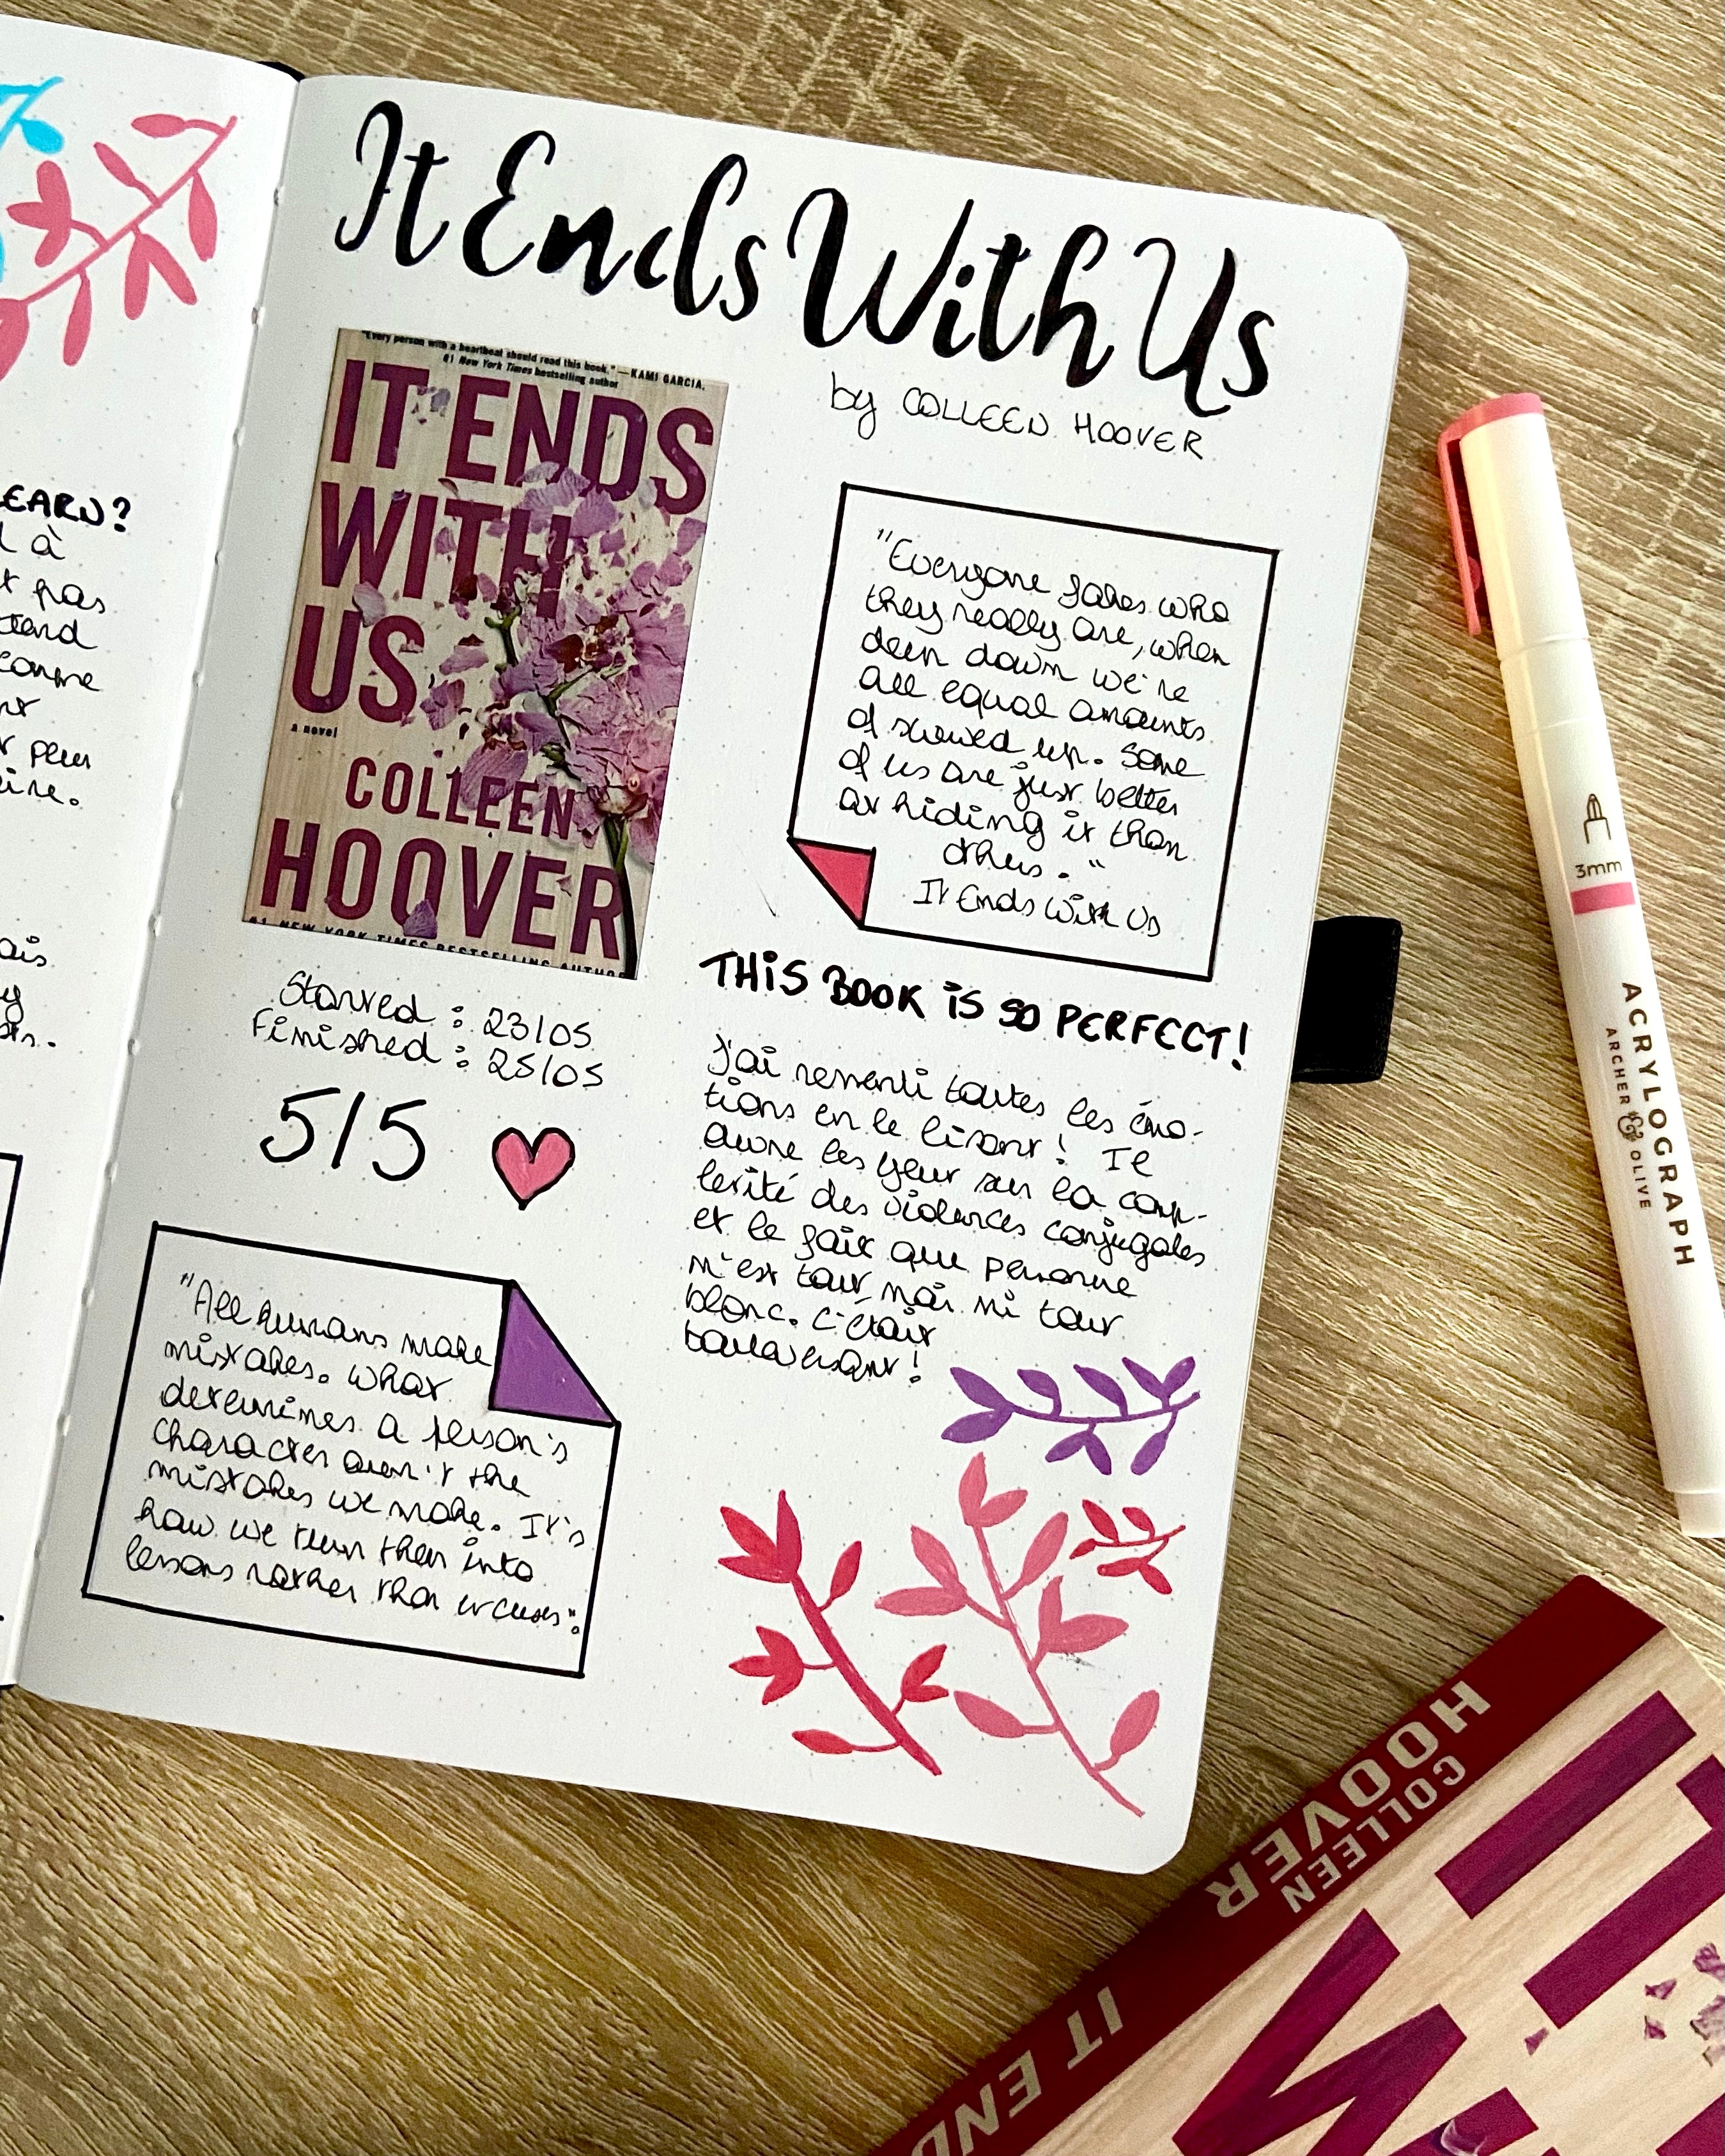 EARN?
à
pas
tend
comme
peu
ire.
ais
It Ends With Us
by COLLEEN HOOVER
"Every person with a heartbeat should read this book." —KAMI GARCIA,
#1 New York Times bestselling author
IT ENDS
WITH
US
a novel
COLLEEN
HOOVER
#1 NEW YORK TIMES BESTSELLING AUTHOR
Started : 23/05
Finished : 25/05
5/5
"All humans make
mistakes. What
determines a person's
character aren't the
mistakes we make. It's
how we turn them into
lessons rather than excuses".
"Everyone fakes who
they really are, when
deep down we're
all equal amounts
of screwed up. Some
of us are just better
at hiding it than
others."
It Ends With Us
THIS BOOK IS SO PERFECT!
J'ai ressenti toutes les émo-
tions en le lisant ! Il
ouvre les yeux sur la comp-
lexité des violences conjugales
et le fait que personne
n'est tout noir ni tout
blanc. C'était
bouleversant !
3mm
ACRYLOGRAPH
ARCHER & OLIVE
COLLEEN
HOOVER
IT END
IT
W